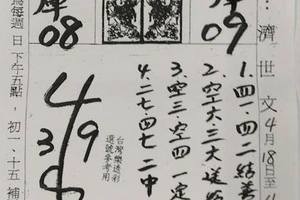 濟世文
4月18日至
1.四一.四二結善
2.空六三大送
3.空三.空四一定
4.二七.四七二中
台灣樂透彩
選號參考用
4
3 9
8
08
09
為每週日下午五點，初一、十五補